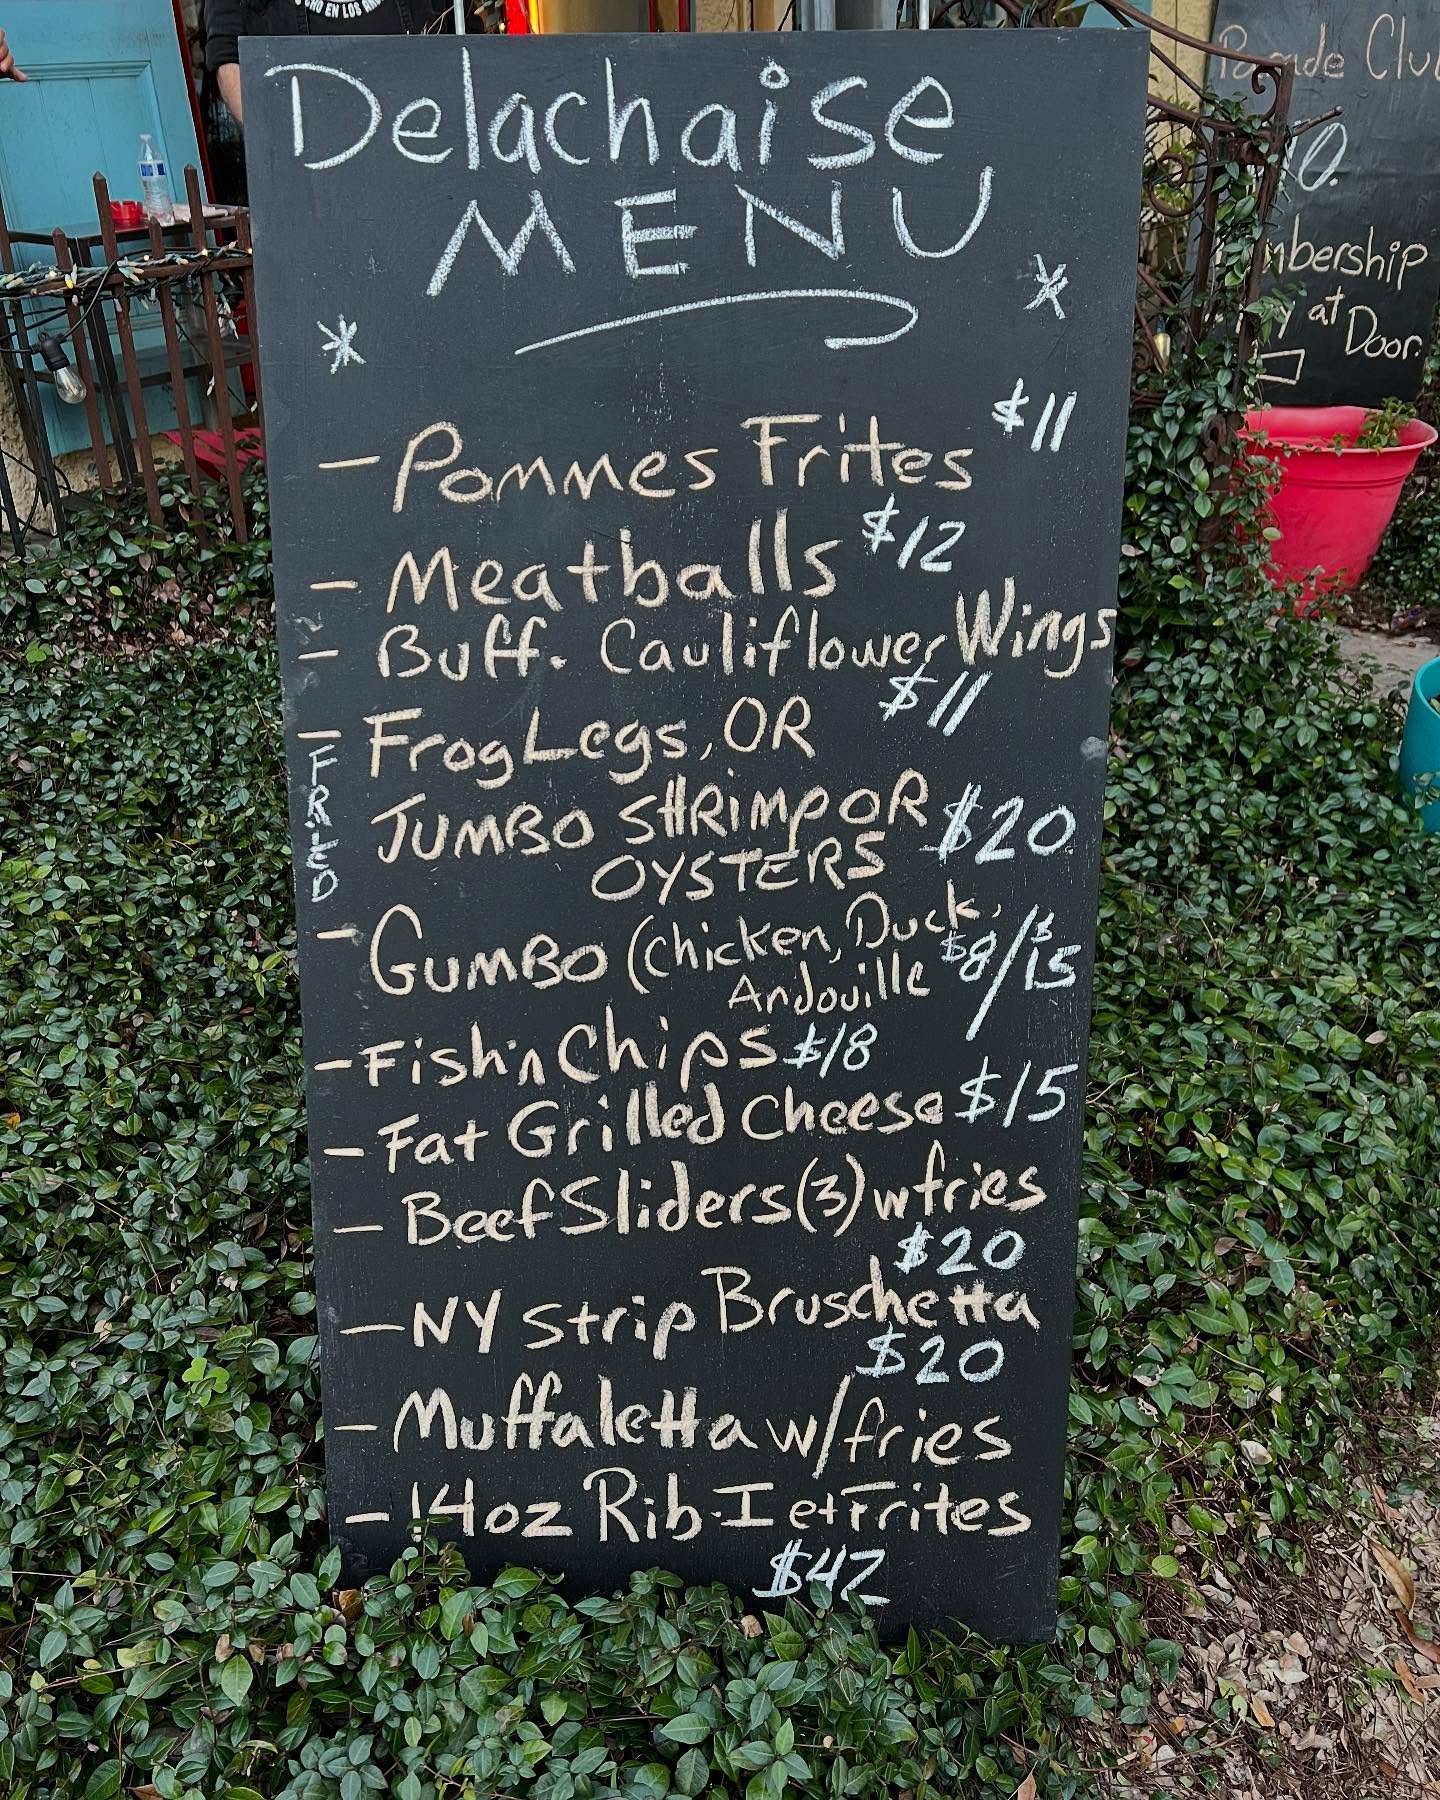 Delachaise
MENU
- Pommes Frites $11
- Meatballs $12
- Buff. Cauliflower Wings
$11
- Frog Legs, OR
JUMBO SHRIMP OR $20
OYSTERS
FRIED
- GUMBO (Chicken, Duck,
Andouille $8/$15
- Fish'n Chips $18
- Fat Grilled Cheese $15
- Beef Sliders (3) w fries
$20
- NY Strip Bruschetta
$20
- Muffaletta w/fries
- 14oz Rib-I et Frites
$42
Parade Club
at
Door.
EN LOS